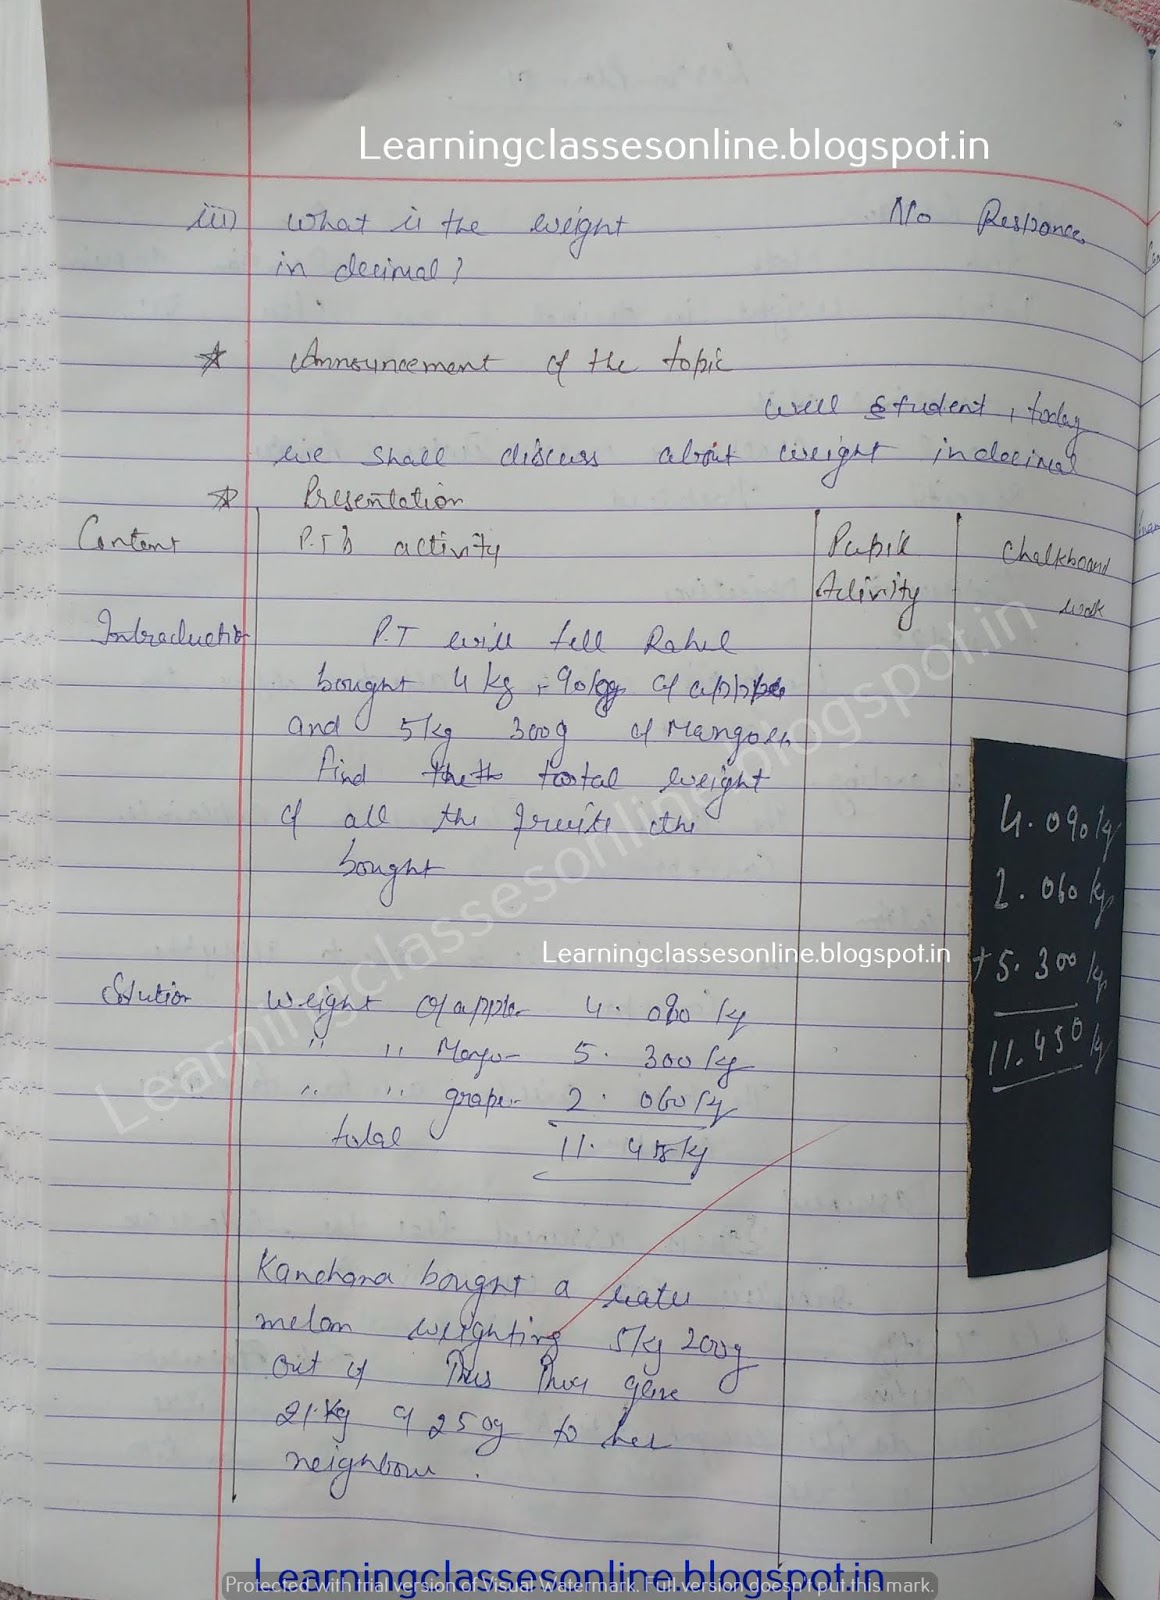 Learningclassesonline.blogspot.in
iii) What is the weight No Responce
in decimal?
Announcement of the topic
will student, today
we shall discuss about weight in decimal
Presentation
Content P.T's activity Pupil Activity Chalkboard work
Introduction P.T will tell Rahul
bought 4 kg 90g of apples
and 5kg 300g of Mangoes
find the total weight
of all the fruits the
bought
4.090 kg
2.060 kg
+ 5.300 kg
11.450 kg
Learningclassesonline.blogspot.in
Solution Weight of apple- 4. 090 kg
" " Mango- 5. 300 kg
" " grape- 2. 060 kg
total 11. 45 kg
Kanchana bought a water
melon weighting 5kg 200g
out of this gave
2kg 250g to her
neighbour.
Learningclassesonline.blogspot.in
Learningclassesonline.blogspot.in
Protected with trial version of Visual Watermark. Full version doesn't put this mark.